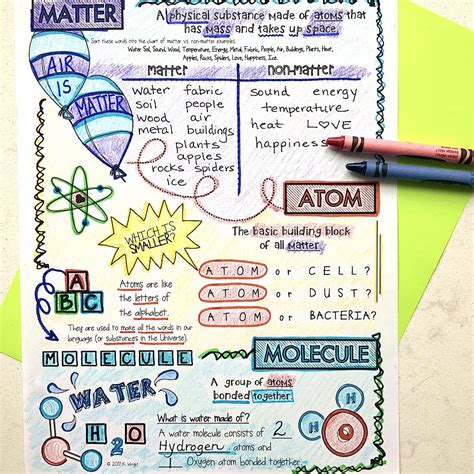 MATTER
A physical substance made of atoms that
has mass and takes up space.
Sort these words into the chart of matter vs. non-matter examples.
Water Soil, Sound, Wood, Temperature, Energy, Metal, Fabric, People, Air, Buildings, Plants, Heat,
Apples, Rocks, Spiders, Love, Happiness, Ice
AIR
IS
MATTER
matter non-matter
water fabric sound energy
soil people temperature
wood air heat LOVE
metal buildings happiness
plants
apples
rocks spiders
ice
ATOM
The basic building block
of all matter.
WHICH IS
SMALLER?
ATOM or CELL?
ATOM or DUST?
ATOM or BACTERIA?
A
B C
Atoms are like
the letters of
the alphabet.
They are used to make all the words in our
language (or substances in the Universe).
MOLECULE
MOLECULE
A group of atoms
bonded together.
WATER
H2O
H
H
O
H
H
O
What is water made of?
A water molecule consists of 2
Hydrogen atoms and
1 Oxygen atom bonded together.